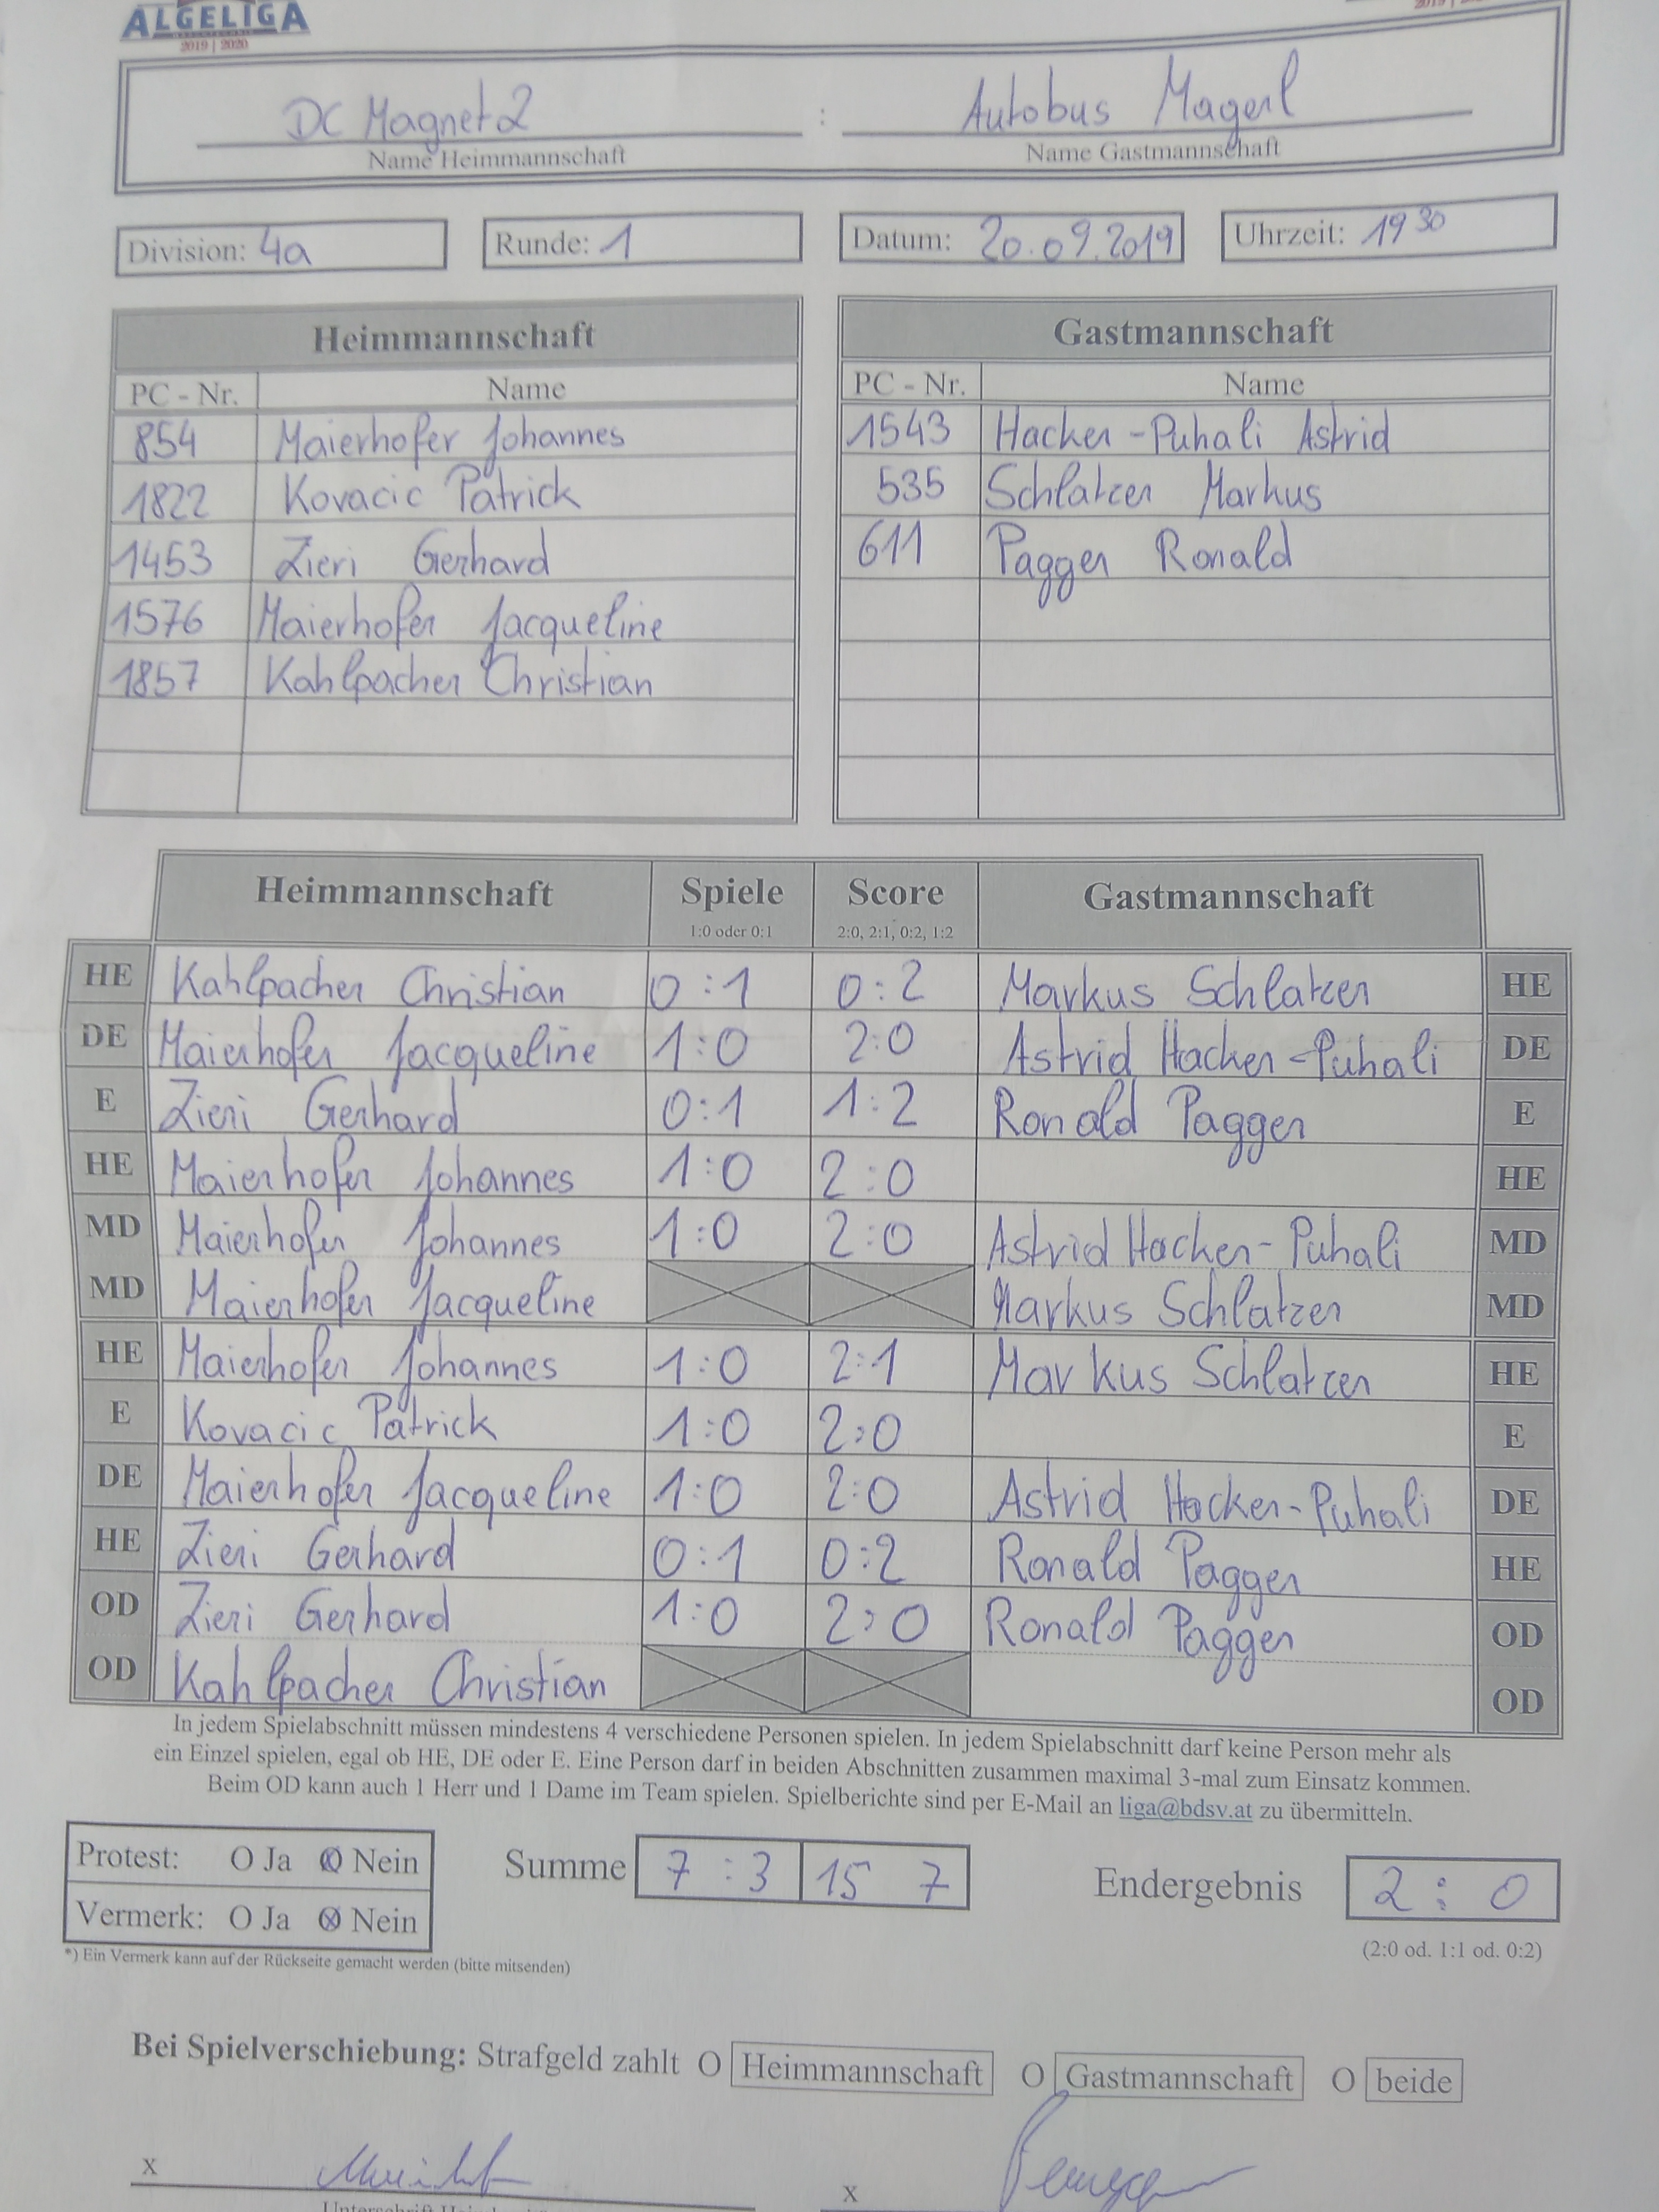 ALGELIGA
2019 | 2020
DC Magnet 2 : Autobus Magerl
Name Heimmannschaft Name Gastmannschaft
Division: 4a Runde: 1 Datum: 20.09.2019 Uhrzeit: 19 30
Heimmannschaft Gastmannschaft
PC - Nr. Name PC - Nr. Name
854 Maierhofer Johannes 1543 Hacker-Puhali Astrid
1822 Kovacic Patrick 535 Schlatzer Markus
1453 Zieri Gerhard 611 Pagger Ronald
1576 Maierhofer Jacqueline
1857 Kahlpacher Christian
Heimmannschaft Spiele Score Gastmannschaft
1:0 oder 0:1 2:0, 2:1, 0:2, 1:2
HE Kahlpacher Christian 0:1 0:2 Markus Schlatzer HE
DE Maierhofer Jacqueline 1:0 2:0 Astrid Hacker-Puhali DE
E Zieri Gerhard 0:1 1:2 Ronald Pagger E
HE Maierhofer Johannes 1:0 2:0 HE
MD Maierhofer Johannes 1:0 2:0 Astrid Hacker-Puhali MD
MD Maierhofer Jacqueline Markus Schlatzer MD
HE Maierhofer Johannes 1:0 2:1 Markus Schlatzer HE
E Kovacic Patrick 1:0 2:0 E
DE Maierhofer Jacqueline 1:0 2:0 Astrid Hacker-Puhali DE
HE Zieri Gerhard 0:1 0:2 Ronald Pagger HE
OD Zieri Gerhard 1:0 2:0 Ronald Pagger OD
OD Kahlpacher Christian OD
In jedem Spielabschnitt müssen mindestens 4 verschiedene Personen spielen. In jedem Spielabschnitt darf keine Person mehr als
ein Einzel spielen, egal ob HE, DE oder E. Eine Person darf in beiden Abschnitten zusammen maximal 3-mal zum Einsatz kommen.
Beim OD kann auch 1 Herr und 1 Dame im Team spielen. Spielberichte sind per E-Mail an liga@bdsv.at zu übermitteln.
Protest: O Ja O Nein Summe 7 : 3 15 7 Endergebnis 2 : 0
Vermerk: O Ja O Nein
(2:0 od. 1:1 od. 0:2)
*) Ein Vermerk kann auf der Rückseite gemacht werden (bitte mitsenden)
Bei Spielverschiebung: Strafgeld zahlt O Heimmannschaft O Gastmannschaft O beide
x x